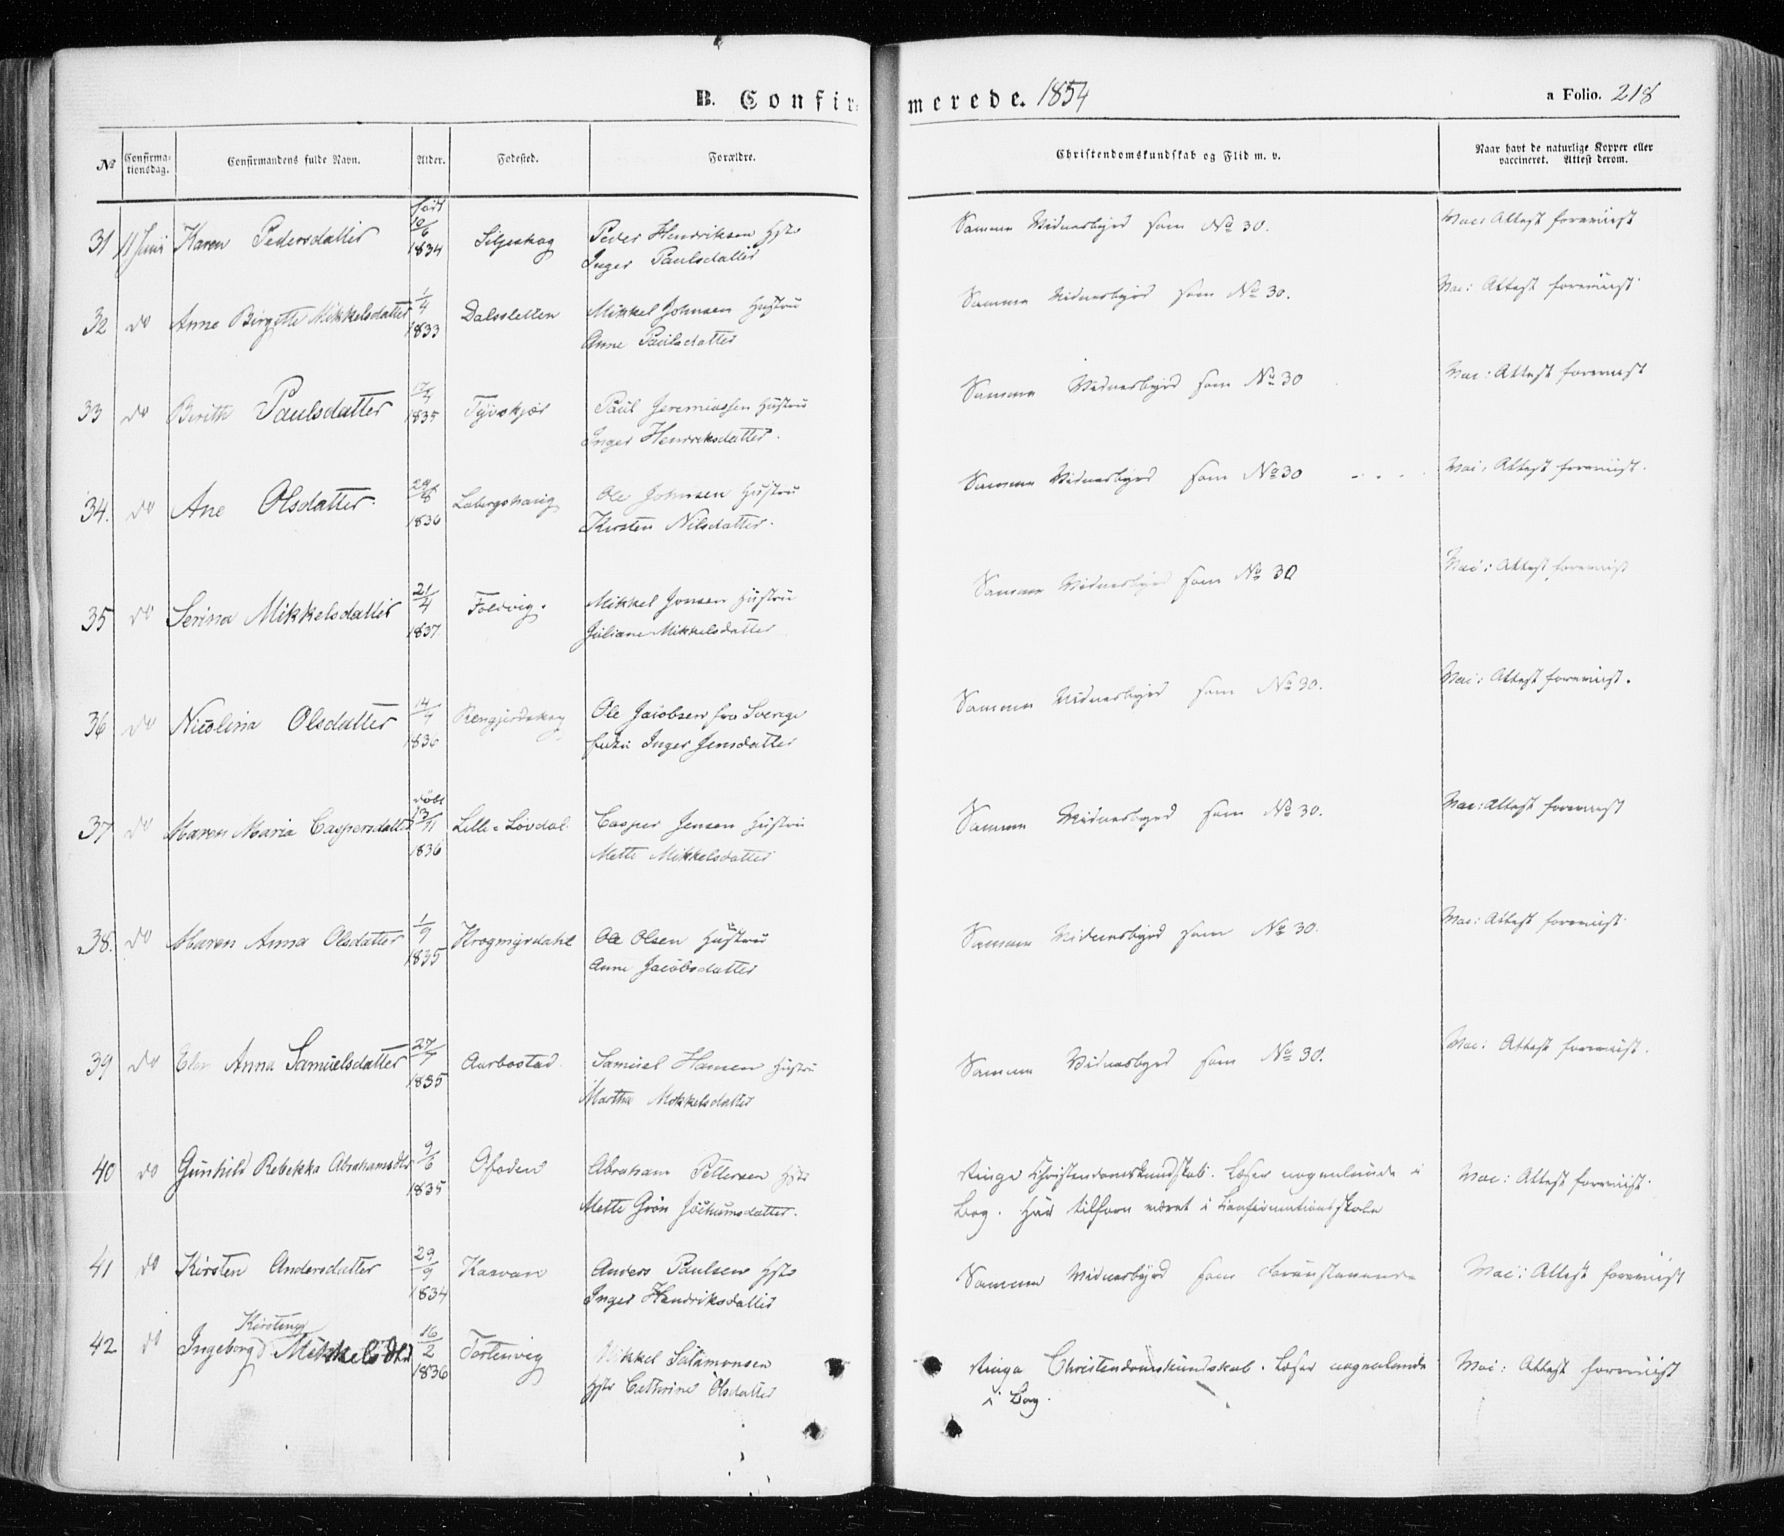 B. Confirmerede. 1854 a Folio. 218
No Confirmationsdag. Confirmandens fulde Navn. Alder. Fødested. Forældre. Christendomskundskab og Flid m. v. Naar havt de naturlige Kopper eller vaccineret. Attest derom.
31 11 Juni Karen Pedersdatter født 10/6 1834 Siljeskog Peder Hendriksen Hstr
Inger Paulsdatter
Samme Vidnesbyrd som No 30. Vac: Attest foreviist
32 do Anne Birgitte Mikkelsdatter 1/4 1833 Dalsletten Mikkel Johnsen Hustru
Anne Paulsdatter
Samme Vidnesbyrd som No 30. Vac: Attest foreviist
33 do Berith Paulsdatter 1835 Tyvskjær Paul Jeremiassen Hustru
Inger Henriksdatter.
Samme Vidnesbyrd som No 30 Vac: Attest foreviist
34. do Ane Olsdatter. 29/8 1836 Labergshaug Ole Johnsen Hustru
Kirsten Nilsdatter.
Samme Vidnesbyrd som No 30 Vac: Attest foreviist.
35 do Serina Mikkelsdatter 21/4 1837 Foldvig. Mikkel Jonsen Hustru
Juliane Mikkelsdatter
Samme Vidnesbyrd som No 30 Vac: Attest foreviist
36 do Nicolina Olsdatter 14/9 1836 Ole Jacobsen fra Sverige
Inger Jensdatter
Samme Vidnesbyrd som No 30. Vac: Attest foreviist.
37 do Maren Maria Caspersdatter døbt 13/11 1836 Lille-Løvdal Casper Jensen Hustru
Mette Mikkelsdatter
Samme Vidnesbyrd som No 30. Vac: Attest foreviist
38. do Maren Anna Olsdatter 1/9 1835 Krogmyrdahl Ole Olsen Hustru
Anne Jacobsdatter
Samme Vidnesbyrd som No 30. Vac: Attest foreviist.
39 do Anna Samuelsdatter 1835 Aarbostad Samuel Hansen Hustru
Martha Mikkelsdatter
Samme Vidnesbyrd som No 30. Vac: Attest foreviist.
40 do Gunhild Rebekka Abrahamsdtr 9/6 1835 Ofoden Abraham Pettersen Hstr
Mette Grøn Jochumsdatter.
Ringe Christendomskundskab. Læser nogenlunde i
Bog. Har tilforn været i Confirmationsskole
Vac: Attest foreviist.
41 do Kirsten Andersdatter 29/9 1834 Kasvan Anders Paulsen Hstr
Inger Hendriksdatter
Samme Vidnesbyrd som foranstaaende Vac: Attest foreviist
Kirstine
42 do Ingeborg Mikkelsdtr 16/2 1836 Tortenvig Mikkel Salamonsen
Hstr Cathrine Olsdatter
Ringe Christendomskundskab. Læser nogenlunde
i Bog.
Vac: Attest foreviist